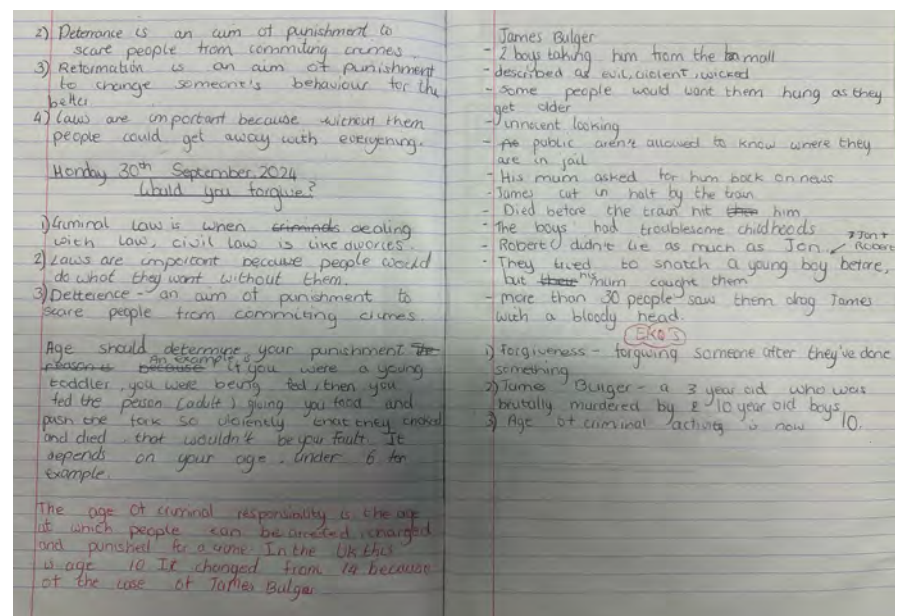 2) Deterrance is an aim of punishment to
scare people from commiting crimes.
3) Reformation is an aim of punishment
to change someone's behaviour for the
better
4) Laws are important because without them
people could get away with everything.
Monday 30th September 2024
Would you forgive?
1) Criminal law is when criminals dealing
with law, civil law is like divorces.
2) Laws are important because people would
do what they want without them.
3) Detterence - an aim of punishment to
scare people from commiting crimes.
Age should determine your punishment. The
reason is because An example is if you were a young
toddler, you were being fed, then you
fed the person (adult) giving you food and
push the fork so violently that they choked
and died, that wouldn't be your fault. It
depends on your age. Under 6 for
example.
The age of criminal responsibility is the age
at which people can be arrested, charged
and punished for a crime. In the UK this
is age 10. It changed from 14 because
of the case of James Bulger
James Bulger
- 2 boys taking him from the mall
- described as evil, violent, wicked
- Some people would want them hung as they
get older
- innocent looking
- public aren't allowed to know where they
are in jail
- His mum asked for him back on news
- James cut in half by the train
- Died before the train hit him
- The boys had troublesome childhoods
- Robert didn't lie as much as Jon. Jon +
Robert
- They tried to snatch a young boy before,
but their his mum caught them
- more than 30 people saw them drag James
with a bloody head.
EKQS
1) forgiveness - forgiving someone after they've done
something
2) James Bulger - a 3 year old who was
brutally murdered by 2 10 year old boys
3) Age of criminal activity is now 10.